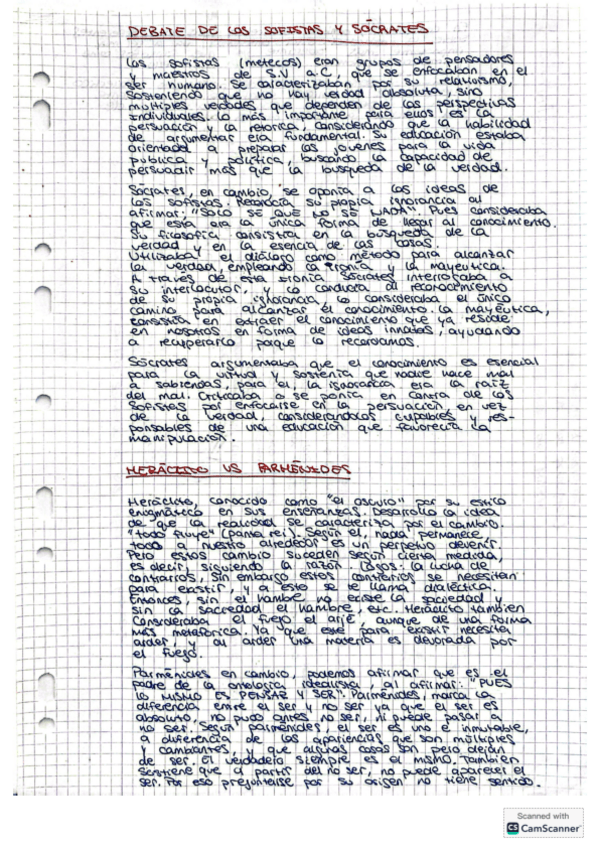 DEBATE DE LOS SOFISTAS Y SÓCRATES
Los sofistas (metecos) eran grupos de pensadores
y maestros de S.V a.C, que se enfocaban en el
ser humano. Se caracterizaban por su relativismo,
sosteniendo que no hay verdad absoluta, sino
múltiples verdades que dependen de las perspectivas
individuales. Lo más importante para ellos es la
persuación y la retórica, considerando que la habilidad
de argumentar era fundamental. Su educación estaba
orientada a preparar los jóvenes para la vida
pública y política, buscando la capacidad de
persuadir más que la búsqueda de la verdad.
Sócrates, en cambio, se oponía a las ideas de
los sofistas. Reconocía su propia ignorancia al
afirmar: "SOLO SE QUE NO SE NADA". Pues consideraba
que esta era la única forma de llegar al conocimiento.
Su filosofía consistía en la búsqueda de la
verdad y en la esencia de las cosas.
Utilizaba el diálogo como método para alcanzar
la verdad, empleando la ironía y la mayeutica.
A través de esta ironía Sócrates interrogaba a
su interlocutor, y lo conducía al reconocimiento
de su propia ignorancia, lo consideraba el único
camino para alcanzar el conocimiento. La mayéutica,
consistía en extraer el conocimiento que ya reside
en nosotros en forma de ideas innatas, ayudando
a recuperarlo porque lo recordamos.
Sócrates argumentaba que el conocimiento es esencial
para la virtud y sostenía que nadie hace mal
a sabiendas, para el, la ignorancia era la raíz
del mal. Criticaba o se ponía en contra de los
sofistas por enfocarse en la persuación, en vez
de la verdad, considerandolos culpables y res-
ponsables de una educación que favorecía la
manipulación.
HERÁCLITO VS PARMÉNIDES
Heráclito, conocido como "el oscuro" por su estilo
enigmático en sus enseñanzas. Desarrollo la idea
de que la realidad se caracteriza por el cambio.
"todo fluye" (panta rei). Según el, nada permanece,
todo a nuestro alrededor es un perpetuo devenir.
Pero estos cambio suceden según cierta medida,
es decir, siguiendo la razón. Logos: la lucha de
contrarios, sin embargo estos contrarios se necesitan
para existir, y a esto se le llama dialéctica.
Entonces, sin el hambre no existe la saciedad y
sin la sacredad el hambre, etc. Heráclito también
consideraba el fuego el arjé, aunque de una forma
más metafórica. Ya que este para existir necesita
arder, y al arder una materia es devorada por
el fuego.
Parménides en cambio, podemos afirmar que es el
padre de la ontología idealista, al afirmar: "PUES
LO MISMO ES PENSAR Y SER". Parménides, marca la
diferencia entre el ser y no ser ya que el ser es
absoluto, no pudo antes no ser, ni puede pasar a
no ser. Según parménides, el ser es uno e inmutable,
a diferencia de las apariencias que son múltiples
y cambiantes, y que algunas cosas son pero dejan
de ser. El verdadero siempre es el mismo. También
sostiene que a partir del no ser, no puede aparecer el
ser. Por eso preguntarse por su origen no tiene sentido.
Scanned with
CS CamScanner